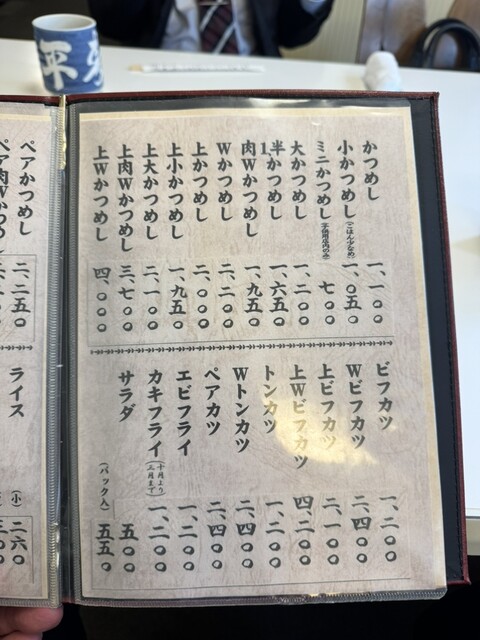 かつめし 一、一〇〇
小かつめし(ごはん少なめ) 一、〇五〇
ミニかつめし(子供用店内のみ) 七〇〇
大かつめし 一、二〇〇
1半かつめし 一、六五〇
肉Wかつめし 一、九五〇
Wかつめし 二、二〇〇
上かつめし 二、〇〇〇
上小かつめし 一、九五〇
上大かつめし 二、一〇〇
上肉Wかつめし 三、七〇〇
上Wかつめし 四、〇〇〇
ビフカツ 一、二〇〇
Wビフカツ 二、四〇〇
上ビフカツ 二、一〇〇
上Wビフカツ 四、二〇〇
トンカツ 一、二〇〇
Wトンカツ 二、四〇〇
ペアカツ 二、四〇〇
エビフライ 一、二〇〇
カキフライ(十月より三月まで) 一、二〇〇
サラダ 五〇〇
(パック入) 五五〇
ペアかつめし 二、二五〇
ペア肉Wかつめし
ライス (小) 二六〇
三〇〇